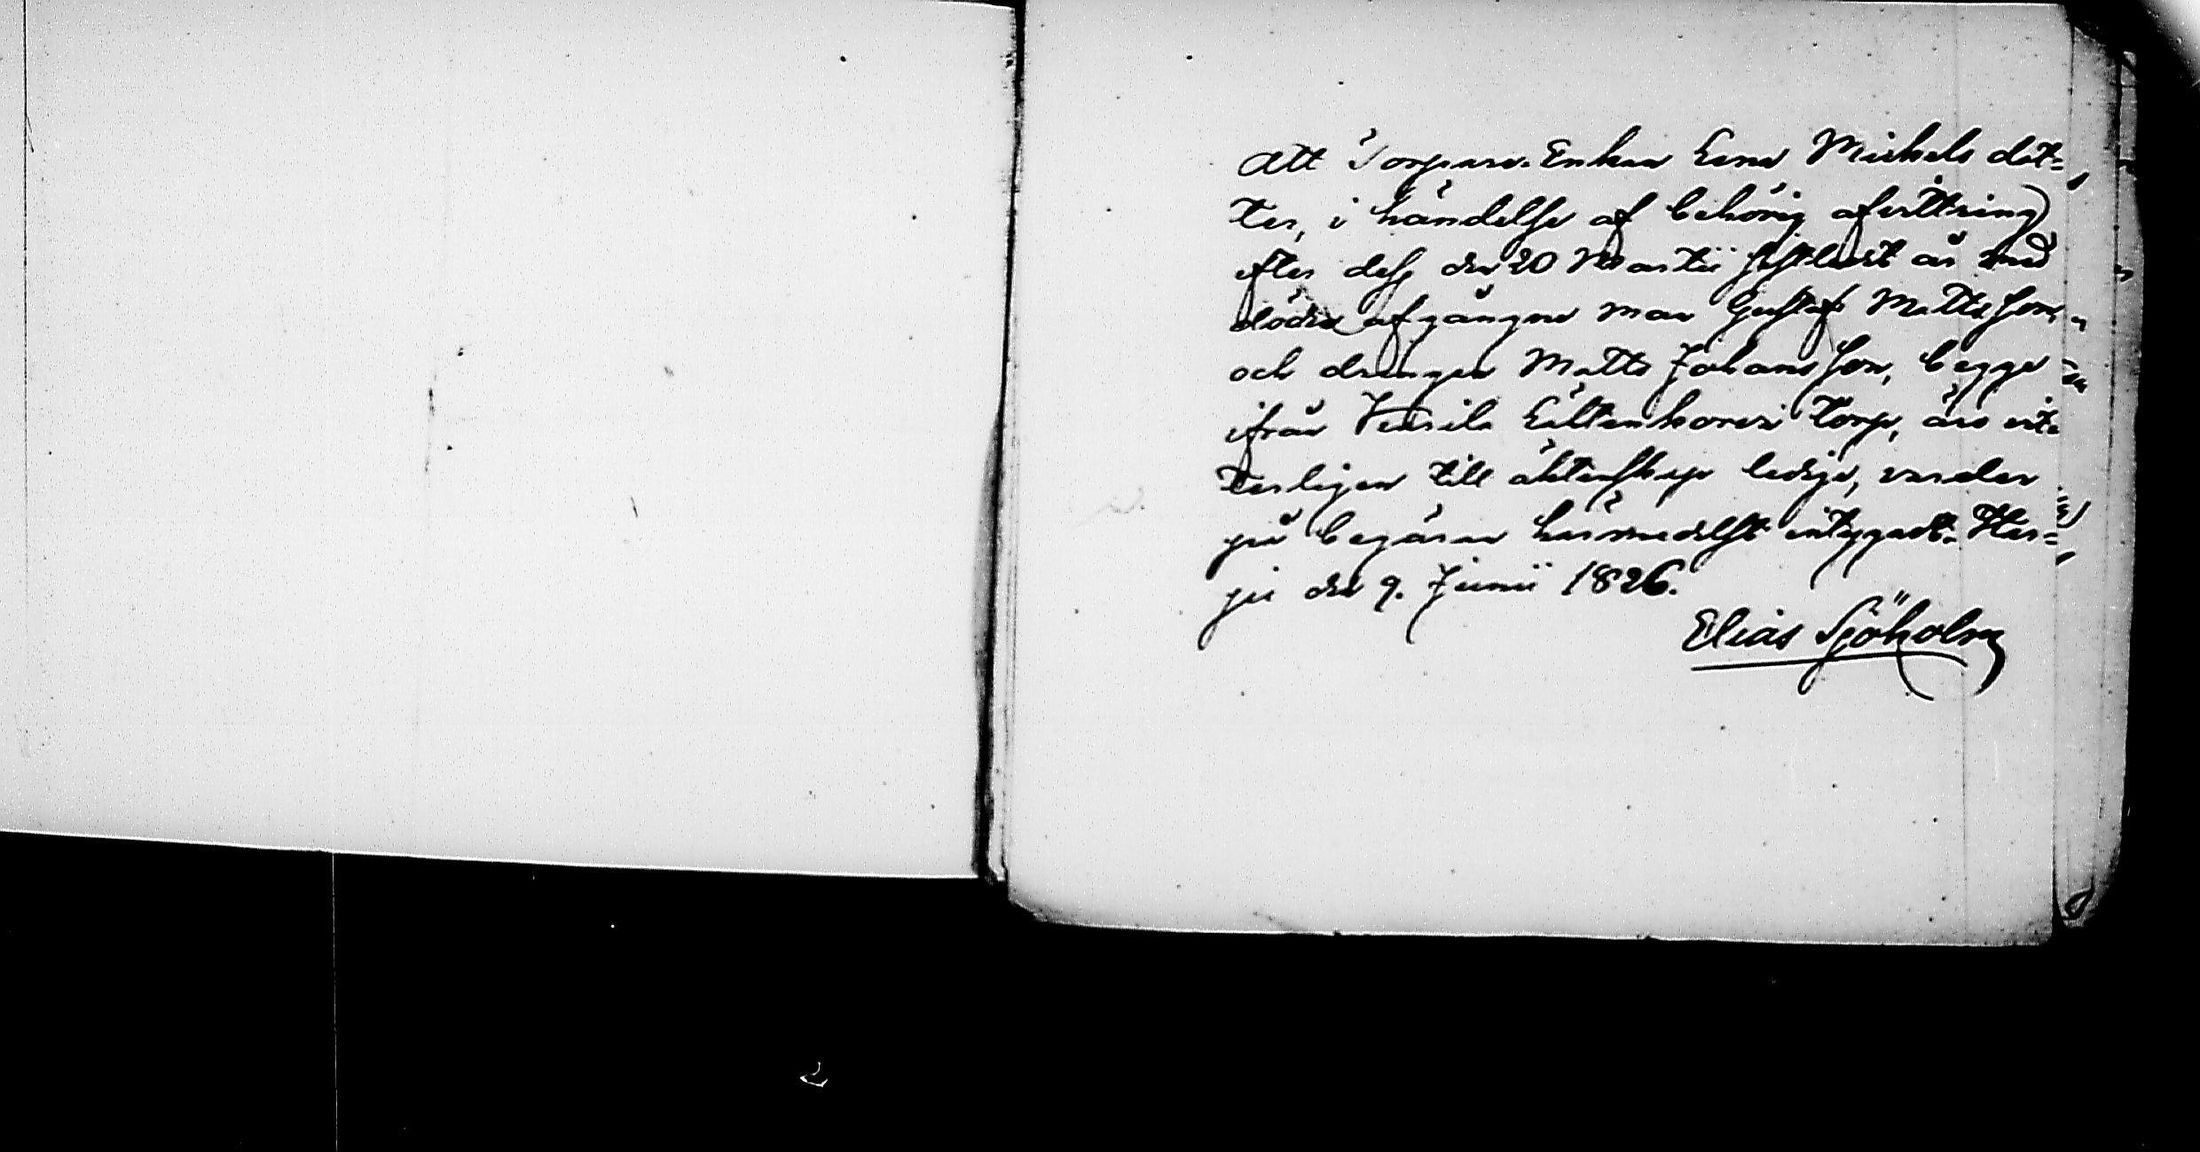 Att Torpare-Enkan Lena Michels dot=
ter, i händelse af behörig afvittring
efter dess den 20 Martii sistledit år med
döden afgångne man Gustaf Mattsson,
och drengen Matts Johansson, begge
ifrån Torp, äro vit-
terligen till äktenskap ledige, varder
på begäran härmedelst intygadt. Har=
ju den 9. Junii 1826.
Elias Sjöholm